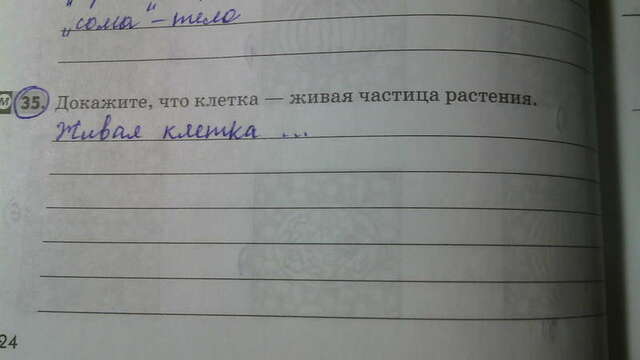 „сома“ – тело
М 35. Докажите, что клетка — живая частица растения.
Живая клетка ...
24